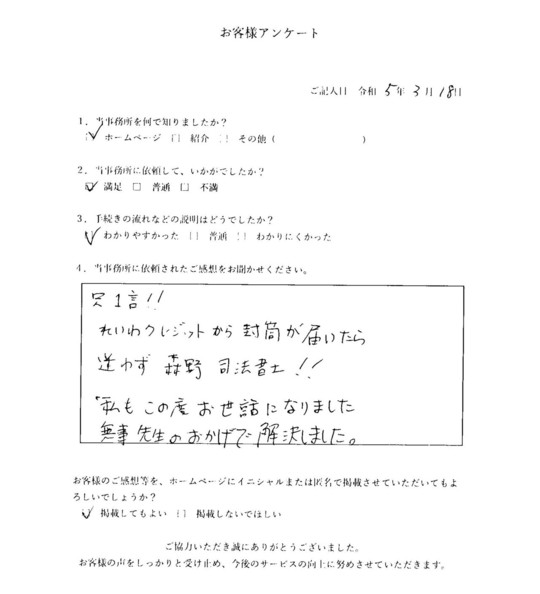 お客様アンケート
ご記入日 令和 5年 3月 18日
1. 当事務所を何で知りましたか?
☑ ホームページ □ 紹介 □ その他 ( )
2. 当事務所に依頼して、いかがでしたか?
☑ 満足 □ 普通 □ 不満
3. 手続きの流れなどの説明はどうでしたか?
☑ わかりやすかった □ 普通 □ わかりにくかった
4. 当事務所に依頼されたご感想をお聞かせください。
只1言!!
れいわクレジットから封筒が届いたら
迷わず 森野 司法書士!!
私もこの度お世話になりました
無事先生のおかげで解決しました。
お客様のご感想等を、ホームページにイニシャルまたは匿名で掲載させていただいてもよ
ろしいでしょうか?
☑ 掲載してもよい □ 掲載しないでほしい
ご協力いただき誠にありがとうございました。
お客様の声をしっかりと受け止め、今後のサービスの向上に努めさせていただきます。